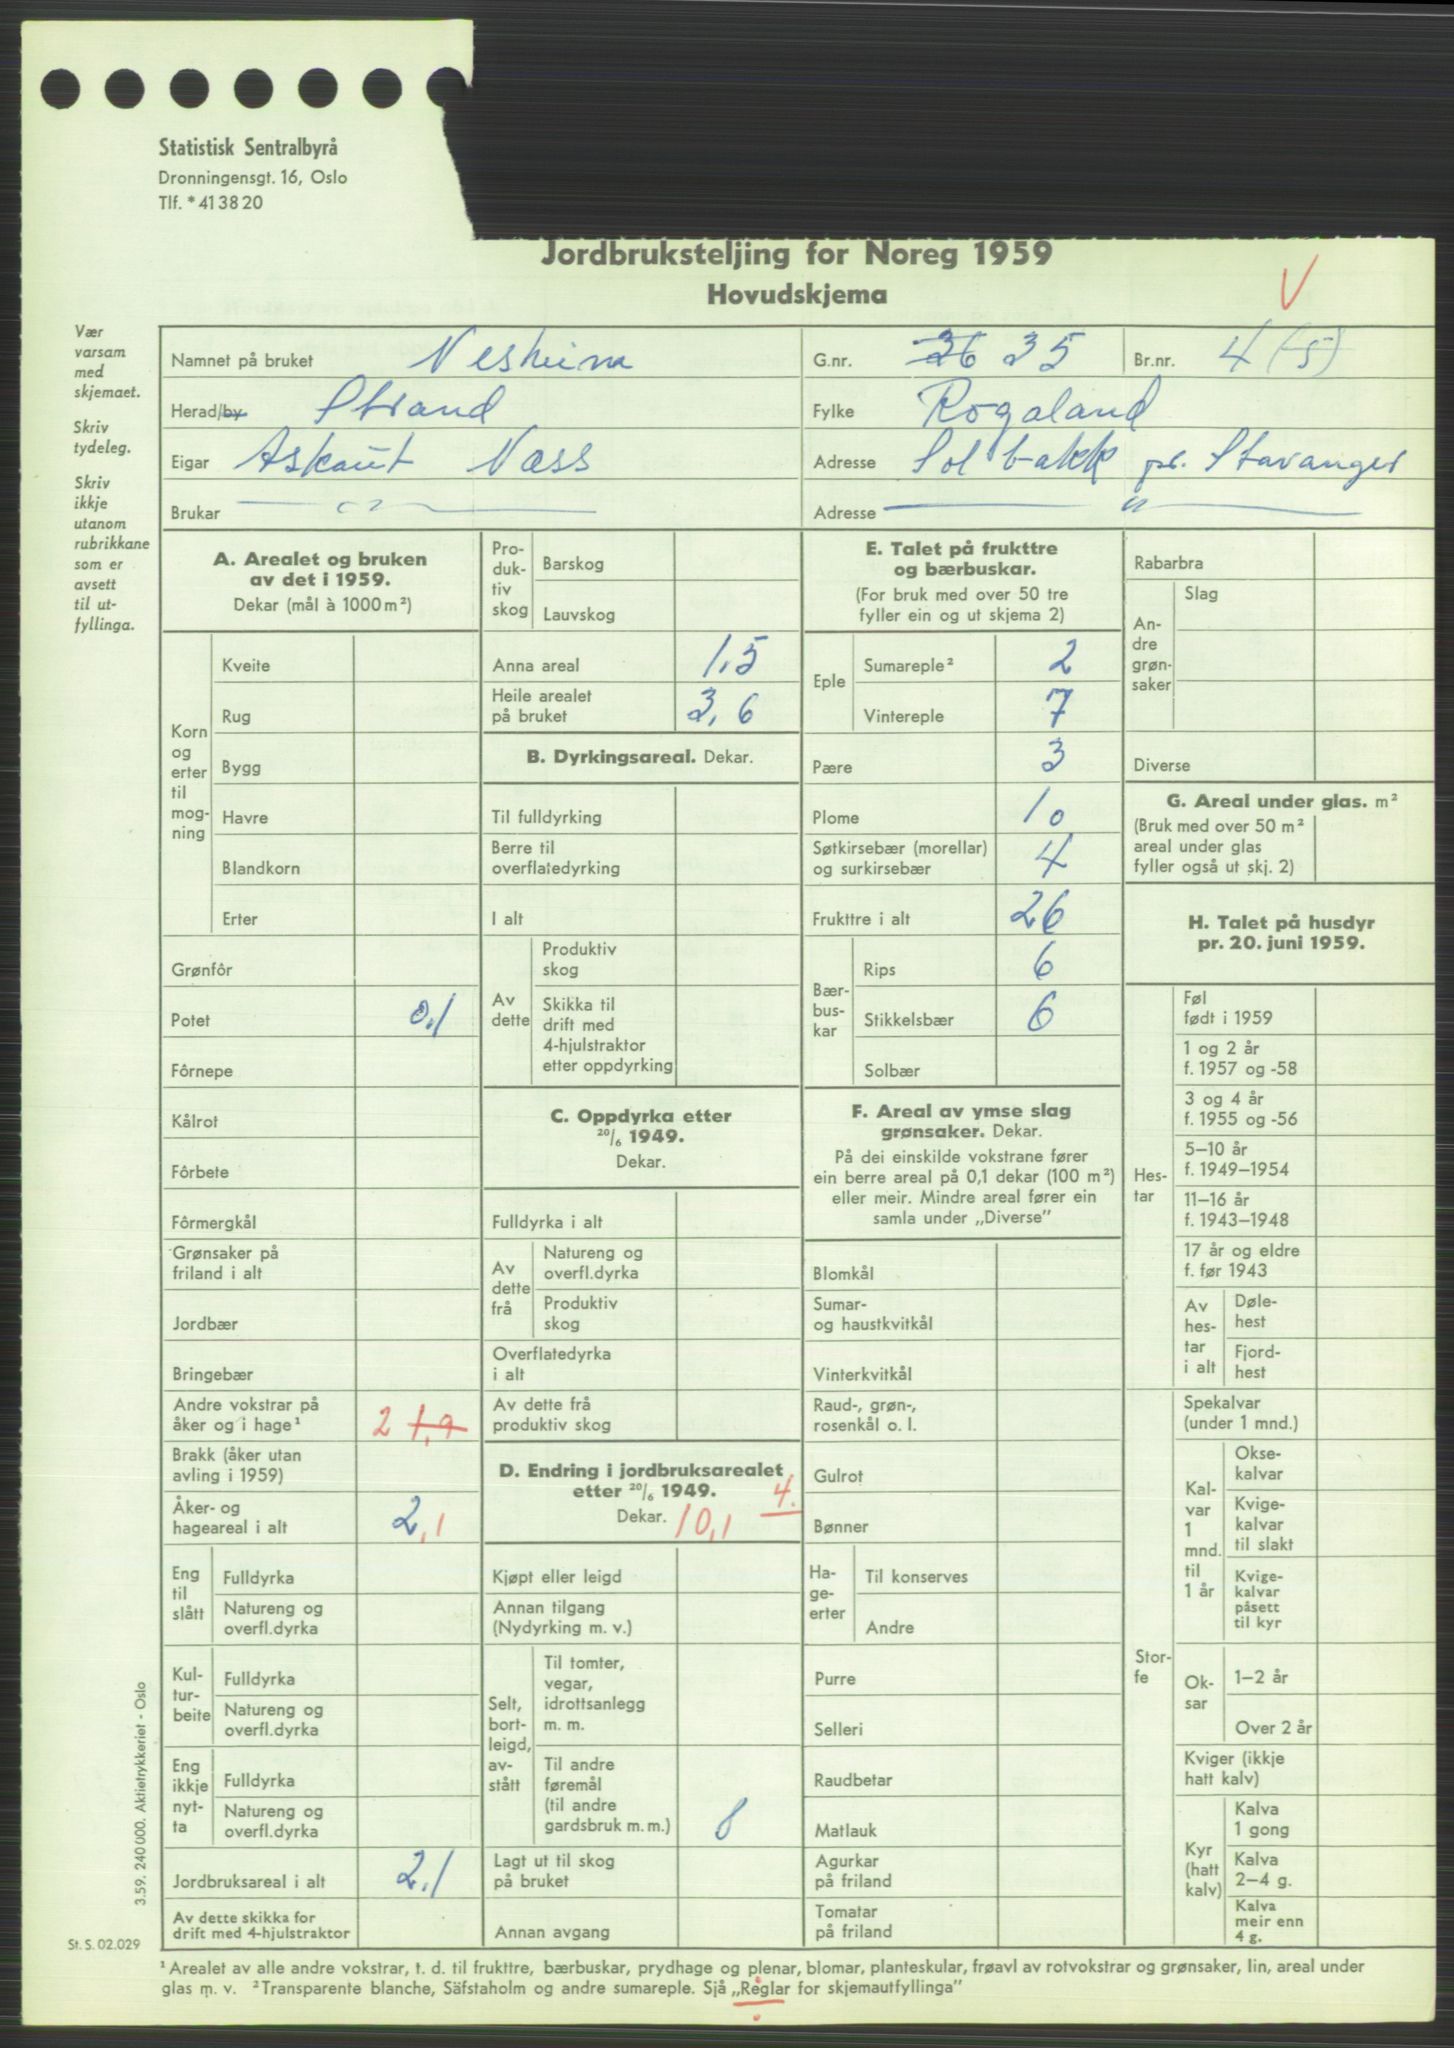 Statistisk Sentralbyrå
Dronningensgt. 16, Oslo
Tlf. *41 38 20
Jordbruksteljing for Noreg 1959
Hovudskjema
V
Vær
varsam
med
skjemaet.
Skriv
tydeleg.
Skriv
ikkje
utanom
rubrikkane
som er
avsett
til ut-
fyllinga.
Namnet på bruket Nesheim G.nr. 36 35 Br.nr. 4 (5)
Herad/by Strand Fylke Rogaland
Eigar Askaut Næss Adresse Solbakk pr. Stavanger
Brukar — " — Adresse — " —
A. Arealet og bruken
av det i 1959.
Dekar (mål à 1000 m²)
Korn
og
erter
til
mog-
ning
Kveite
Rug
Bygg
Havre
Blandkorn
Erter
Grønfôr
Potet 0,1
Fôrnepe
Kålrot
Fôrbete
Fôrmergkål
Grønsaker på
friland i alt
Jordbær
Bringebær
Andre vokstrar på
åker og i hage¹ 2 1,9
Brakk (åker utan
avling i 1959)
Åker- og
hageareal i alt 2,1
Eng
til
slått
Fulldyrka
Natureng og
overfl.dyrka
Kul-
tur-
beite
Fulldyrka
Natureng og
overfl.dyrka
Eng
ikkje
nyt-
ta
Fulldyrka
Natureng og
overfl.dyrka
Jordbruksareal i alt 2,1
Av dette skikka for
drift med 4-hjulstraktor
Pro-
duk-
tiv
skog
Barskog
Lauvskog
Anna areal 1,5
Heile arealet
på bruket 3,6
B. Dyrkingsareal. Dekar.
Til fulldyrking
Berre til
overflatedyrking
I alt
Av
dette
Produktiv
skog
Skikka til
drift med
4-hjulstraktor
etter oppdyrking
C. Oppdyrka etter
20/6 1949.
Dekar.
Fulldyrka i alt
Av
dette
frå
Natureng og
overfl.dyrka
Produktiv
skog
Overflatedyrka
i alt
Av dette frå
produktiv skog
D. Endring i jordbruksarealet
etter 20/6 1949. 4.
Dekar. 10,1
Kjøpt eller leigd
Annan tilgang
(Nydyrking m. v.)
Selt,
bort-
leigd,
av-
stått
Til tomter,
vegar,
idrottsanlegg
m. m.
Til andre
føremål
(til andre
gardsbruk m. m.) 8
Lagt ut til skog
på bruket
Annan avgang
E. Talet på frukttre
og bærbuskar.
(For bruk med over 50 tre
fyller ein og ut skjema 2)
Eple
Sumareple² 2
Vintereple 7
Pære 3
Plome 10
Søtkirsebær (morellar)
og surkirsebær 4
Frukttre i alt 26
Bær-
bus-
kar
Rips 6
Stikkelsbær 6
Solbær
F. Areal av ymse slag
grønsaker. Dekar.
På dei einskilde vokstrane fører
ein berre areal på 0,1 dekar (100 m²)
eller meir. Mindre areal fører ein
samla under „Diverse"
Blomkål
Sumar-
og haustkvitkål
Vinterkvitkål
Raud-, grøn-,
rosenkål o. l.
Gulrot
Bønner
Ha-
ge-
erter
Til konserves
Andre
Purre
Selleri
Raudbetar
Matlauk
Agurkar
på friland
Tomatar
på friland
Rabarbra
An-
dre
grøn-
saker
Slag
Diverse
G. Areal under glas. m²
(Bruk med over 50 m²
areal under glas
fyller også ut skj. 2)
H. Talet på husdyr
pr. 20. juni 1959.
Hes-
tar
Føl
født i 1959
1 og 2 år
f. 1957 og -58
3 og 4 år
f. 1955 og -56
5–10 år
f. 1949–1954
11–16 år
f. 1943–1948
17 år og eldre
f. før 1943
Av
hes-
tar
i alt
Døle-
hest
Fjord-
hest
Stor-
fe
Spekalvar
(under 1 mnd.)
Kal-
var
1
mnd.
til
1 år
Okse-
kalvar
Kvige-
kalvar
til slakt
Kvige-
kalvar
påsett
til kyr
Ok-
sar
1–2 år
Over 2 år
Kviger (ikkje
hatt kalv)
Kyr
(hatt
kalv)
Kalva
1 gong
Kalva
2–4 g.
Kalva
meir enn
4 g.
3.59. 240 000. Aktietrykkeriet - Oslo
St. S. 02.029
¹ Arealet av alle andre vokstrar, t. d. til frukttre, bærbuskar, prydhage og plenar, blomar, planteskular, frøavl av rotvokstrar og grønsaker, lin, areal under
glas m. v. ² Transparente blanche, Säfstaholm og andre sumareple. Sjå „Reglar for skjemautfyllinga"